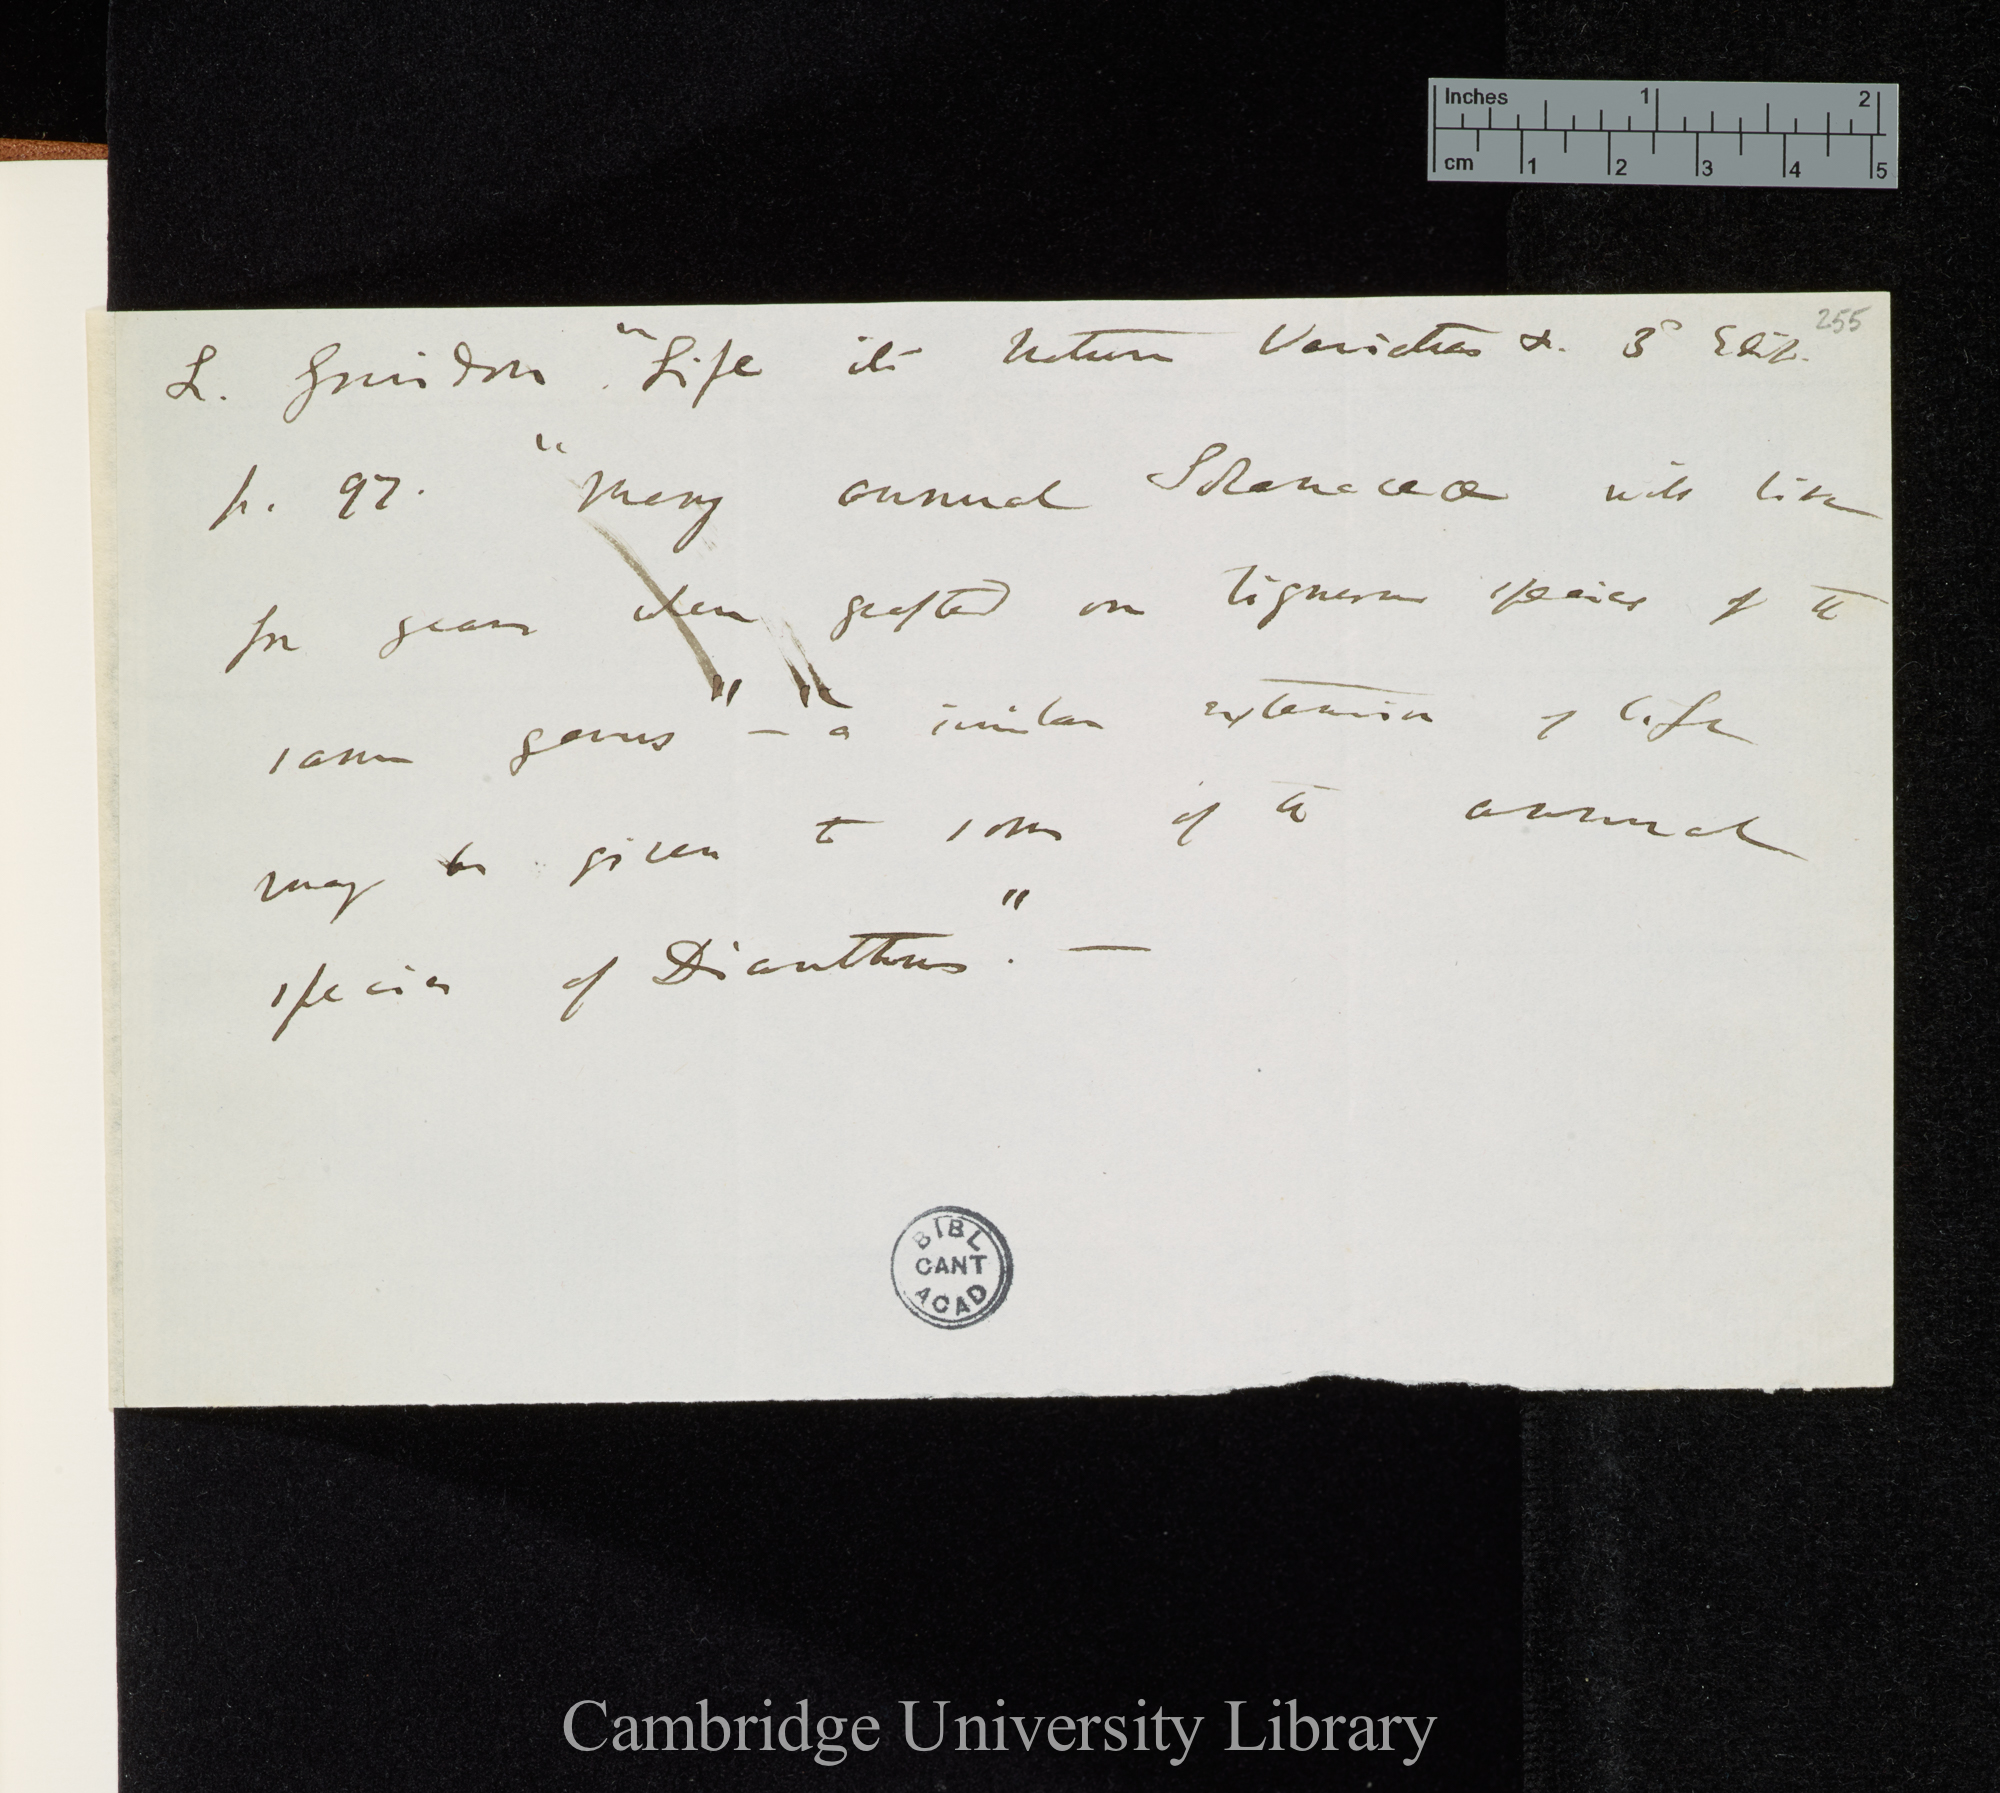 Inches 1 2
cm 1 2 3 4 5
255
L. Grindon "Life its Nature Varieties &c. 3d Edit.
p. 97. "Many annual Solanaceæ will live
for years when grafted on ligneous species of the
same genus" — "a similar extension of life
may be given to some of the annual
species of Dianthus". —
BIBL
CANT
ACAD
Cambridge University Library